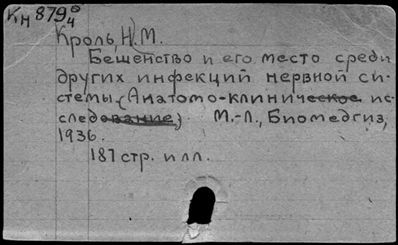 Кн 879 0/4
Кроль, Н.М.
Бешенство и его место среди
других инфекций нервной си-
стемы (Анатомо-клиническое ис-
следование) М.-Л., Биомедгиз,
1936.
187 стр. илл.